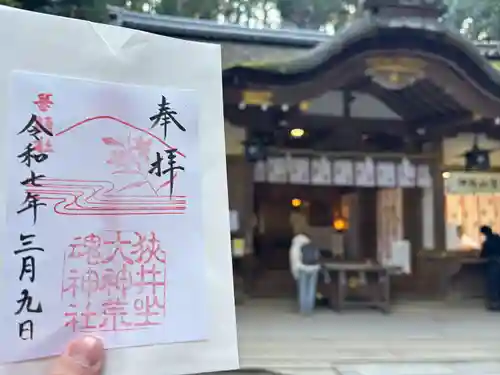 奉拝
令和七年三月九日
狭井坐
大神荒
魂神社